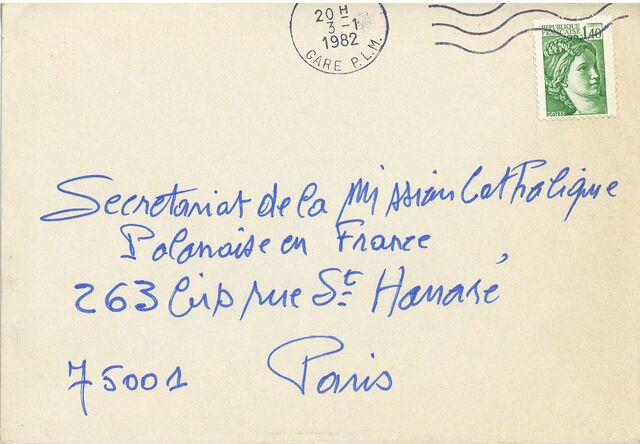 20 H
3-1
1982
GARE P.L.M.
REPUBLIQUE
FRANÇAISE
1,40
POSTES
Secretariat de la Mission Catholique
Polonaise en France
263 bis rue St Honoré
75001 Paris